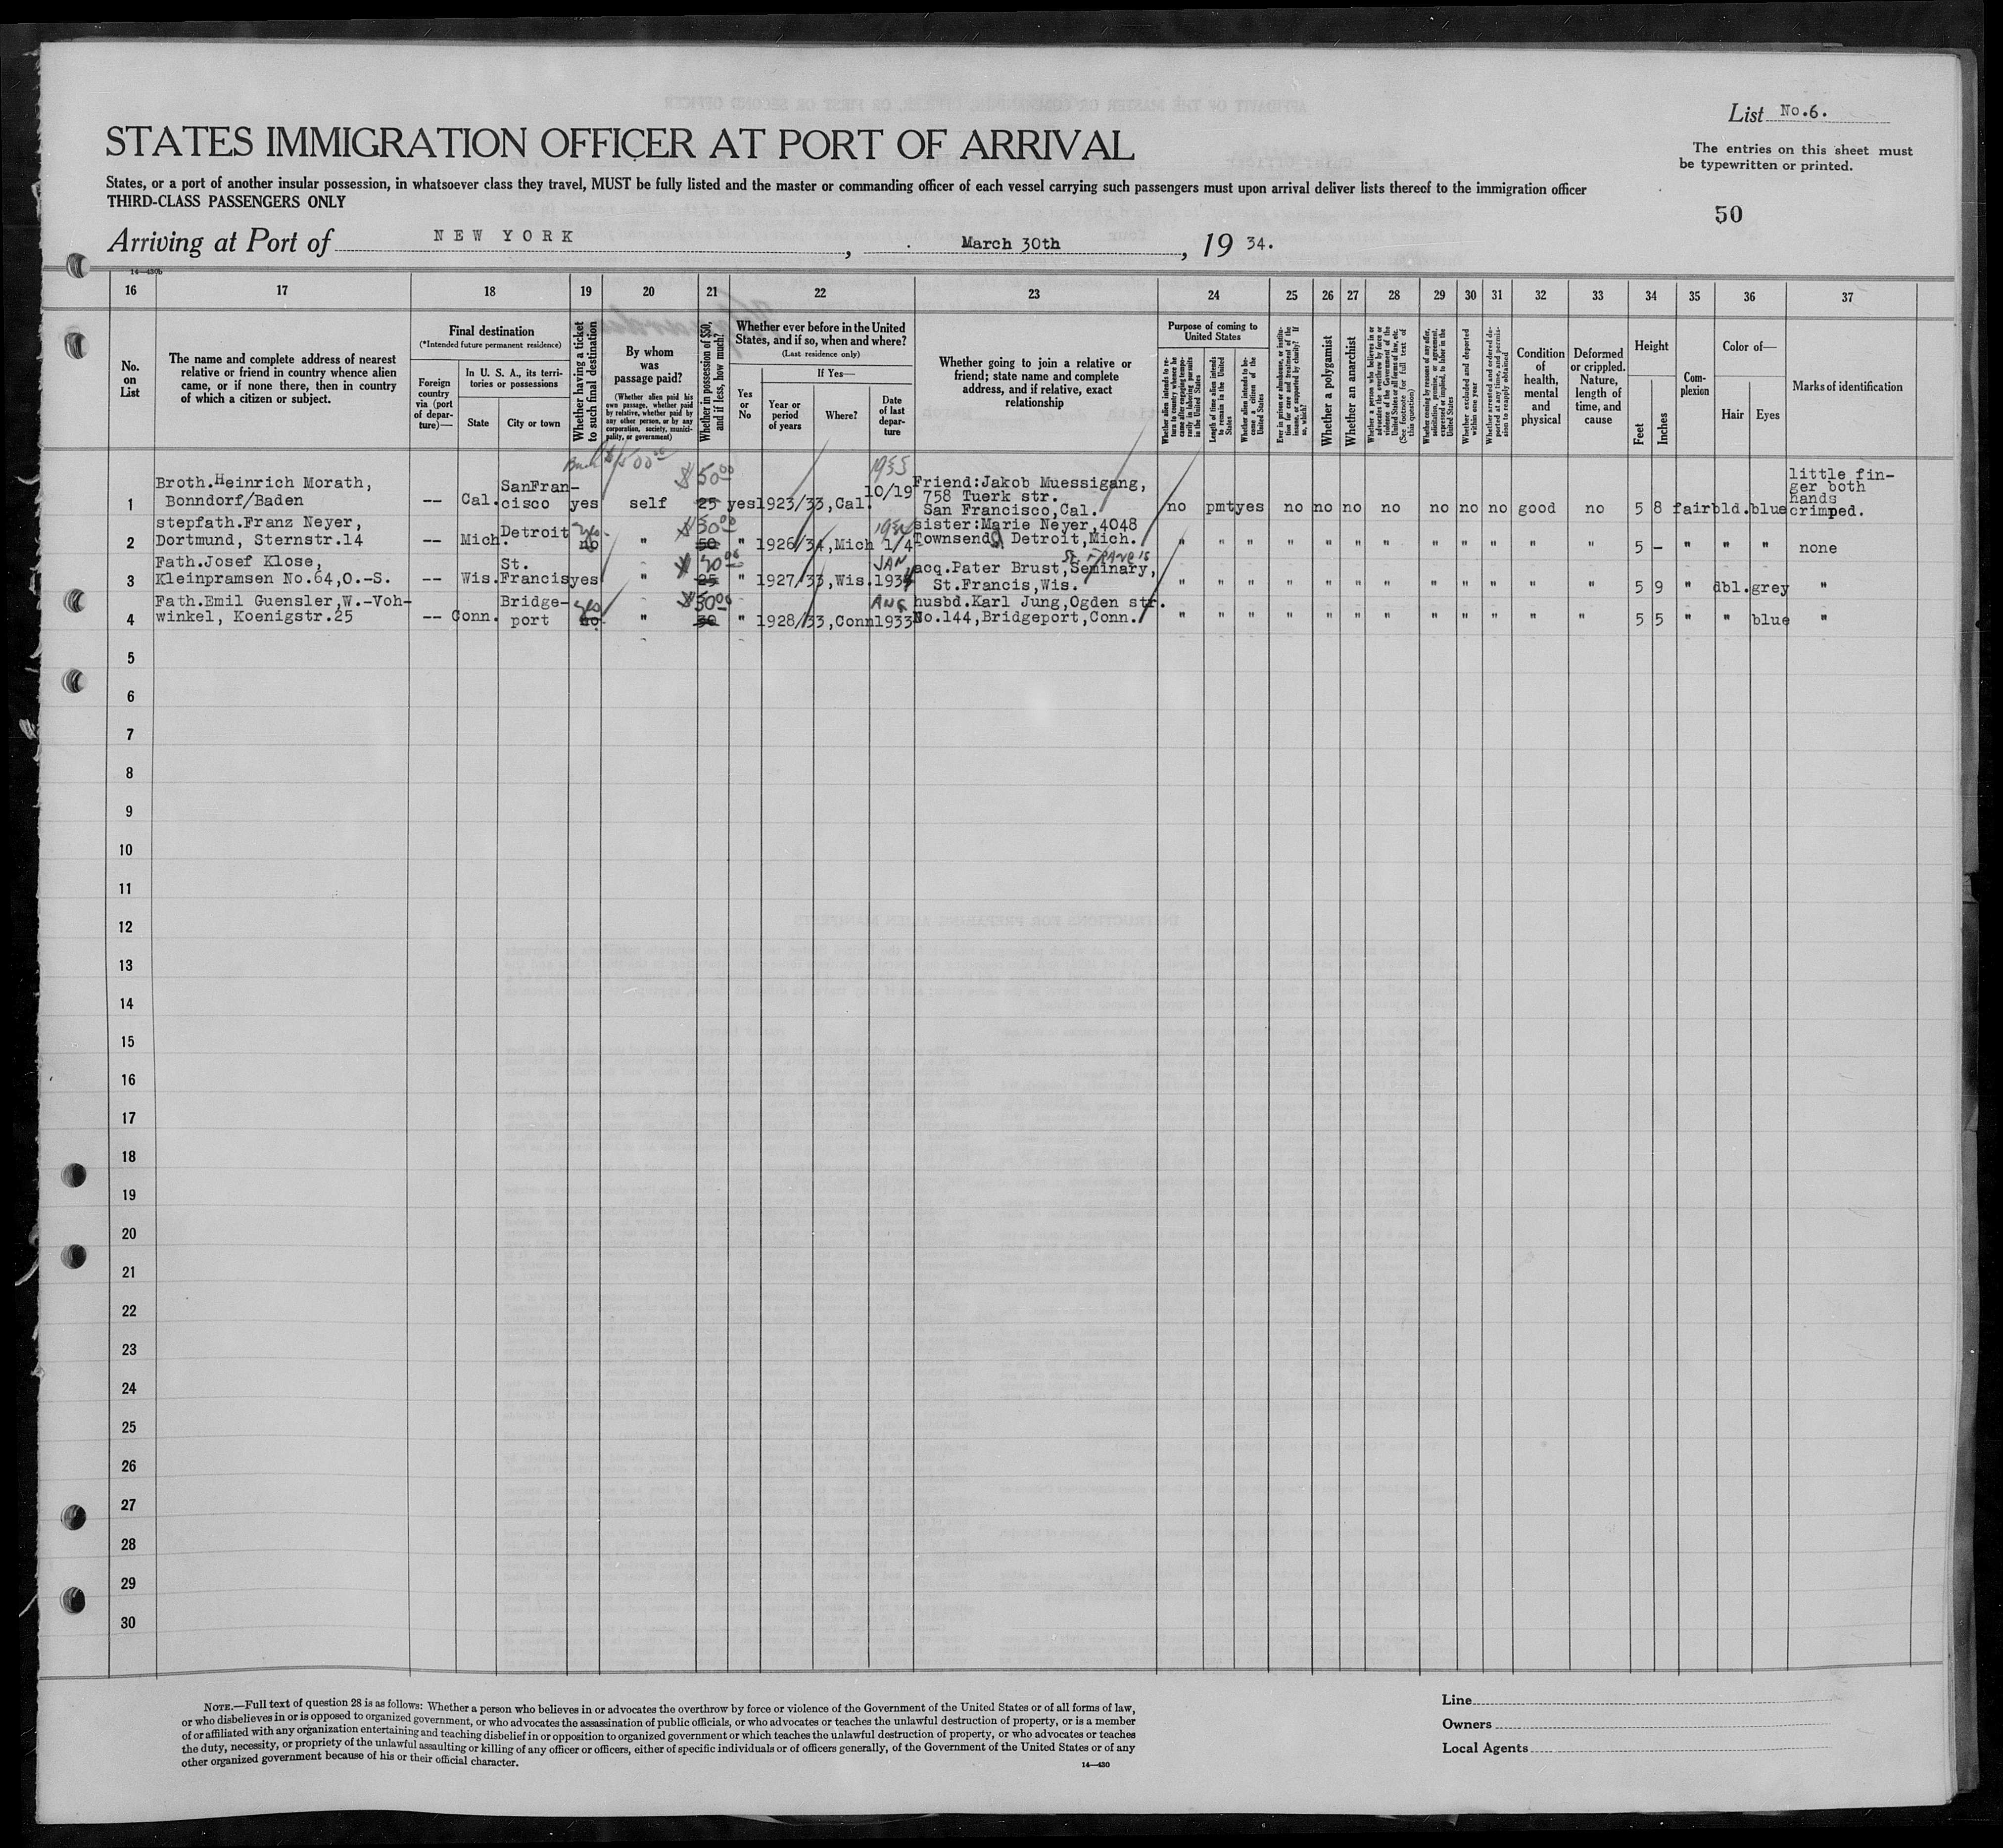 List No.6.
STATES IMMIGRATION OFFICER AT PORT OF ARRIVAL
The entries on this sheet must
be typewritten or printed.
States, or a port of another insular possession, in whatsoever class they travel, MUST be fully listed and the master or commanding officer of each vessel carrying such passengers must upon arrival deliver lists thereof to the immigration officer
THIRD-CLASS PASSENGERS ONLY
50
Arriving at Port of NEW YORK, March 30th, 19 34.
14—430b
16 17 18 19 20 21 22 23 24 25 26 27 28 29 30 31 32 33 34 35 36 37
No. on List
The name and complete address of nearest
relative or friend in country whence alien
came, or if none there, then in country
of which a citizen or subject.
Final destination
(*Intended future permanent residence)
Foreign country via (port of departure)—
In U. S. A., its territories or possessions
State
City or town
Whether having a ticket to such final destination
By whom was passage paid?
(Whether alien paid his own passage, whether paid by relative, whether paid by any other person, or by any corporation, society, municipality, or government)
Whether in possession of $50, and if less, how much?
Whether ever before in the United
States, and if so, when and where?
(Last residence only)
Yes or No
If Yes—
Year or period of years
Where?
Date of last departure
Whether going to join a relative or
friend; state name and complete
address, and if relative, exact
relationship
Purpose of coming to United States
Whether alien intends to return to country whence he came after engaging temporarily in laboring pursuits in the United States
Length of time alien intends to remain in the United States
Whether alien intends to become a citizen of the United States
Ever in prison or almshouse, or institution for care and treatment of the insane, or supported by charity? If so, which?
Whether a polygamist
Whether an anarchist
Whether a person who believes in or advocates the overthrow by force or violence of the Government of the United States or all forms of law, etc. (See footnote for full text of this question)
Whether coming by reasons of any offer, solicitation, promise, or agreement, expressed or implied, to labor in the United States
Whether excluded and deported within one year
Whether arrested and ordered deported at any time, and permission to reapply obtained
Condition of health, mental and physical
Deformed or crippled. Nature, length of time, and cause
Height
Feet
Inches
Complexion
Color of—
Hair
Eyes
Marks of identification
$1500.00
1 Broth.Heinrich Morath,
Bonndorf/Baden
-- Cal. SanFran-
cisco yes self 25 $50.00 yes 1923/33,Cal. 1933 10/19
Friend:Jakob Muessigang,
758 Tuerk str.
San Francisco,Cal.
no pmt yes no no no no no no no good no 5 8 fair bld. blue
little fin-
ger both
hands
crimped.
2 stepfath.Franz Neyer,
Dortmund, Sternstr.14
-- Mich. Detroit no yes " 50 $50.00 " 1926/34,Mich 1934 1/4
sister:Marie Neyer,4048
Townsend Detroit,Mich.
" " " " " " " " " " " " 5 - " " " none
3 Fath.Josef Klose,
Kleinpramsen No.64,O.-S.
-- Wis. St.
Francis yes " 25 " 1927/33,Wis. JAN 1934
St Francis
acq.Pater Brust,Seminary,
St.Francis,Wis.
" " " " " " " " " " " " 5 9 " dbl. grey "
4 Fath.Emil Guensler,W.-Voh-
winkel, Koenigstr.25
-- Conn. Bridge-
port no yes " $50.00 " 1928/33,Conn AUG 1933
husbd.Karl Jung,Ogden str.
No.144,Bridgeport,Conn.
" " " " " " " " " " " " 5 5 " " blue "
5
6
7
8
9
10
11
12
13
14
15
16
17
18
19
20
21
22
23
24
25
26
27
28
29
30
NOTE.—Full text of question 28 is as follows: Whether a person who believes in or advocates the overthrow by force or violence of the Government of the United States or of all forms of law,
or who disbelieves in or is opposed to organized government, or who advocates the assassination of public officials, or who advocates or teaches the unlawful destruction of property, or is a member
of or affiliated with any organization entertaining and teaching disbelief in or opposition to organized government or which teaches the unlawful destruction of property, or who advocates or teaches
the duty, necessity, or propriety of the unlawful assaulting or killing of any officer or officers, either of specific individuals or of officers generally, of the Government of the United States or of any
other organized government because of his or their official character.
14—430
Line
Owners
Local Agents